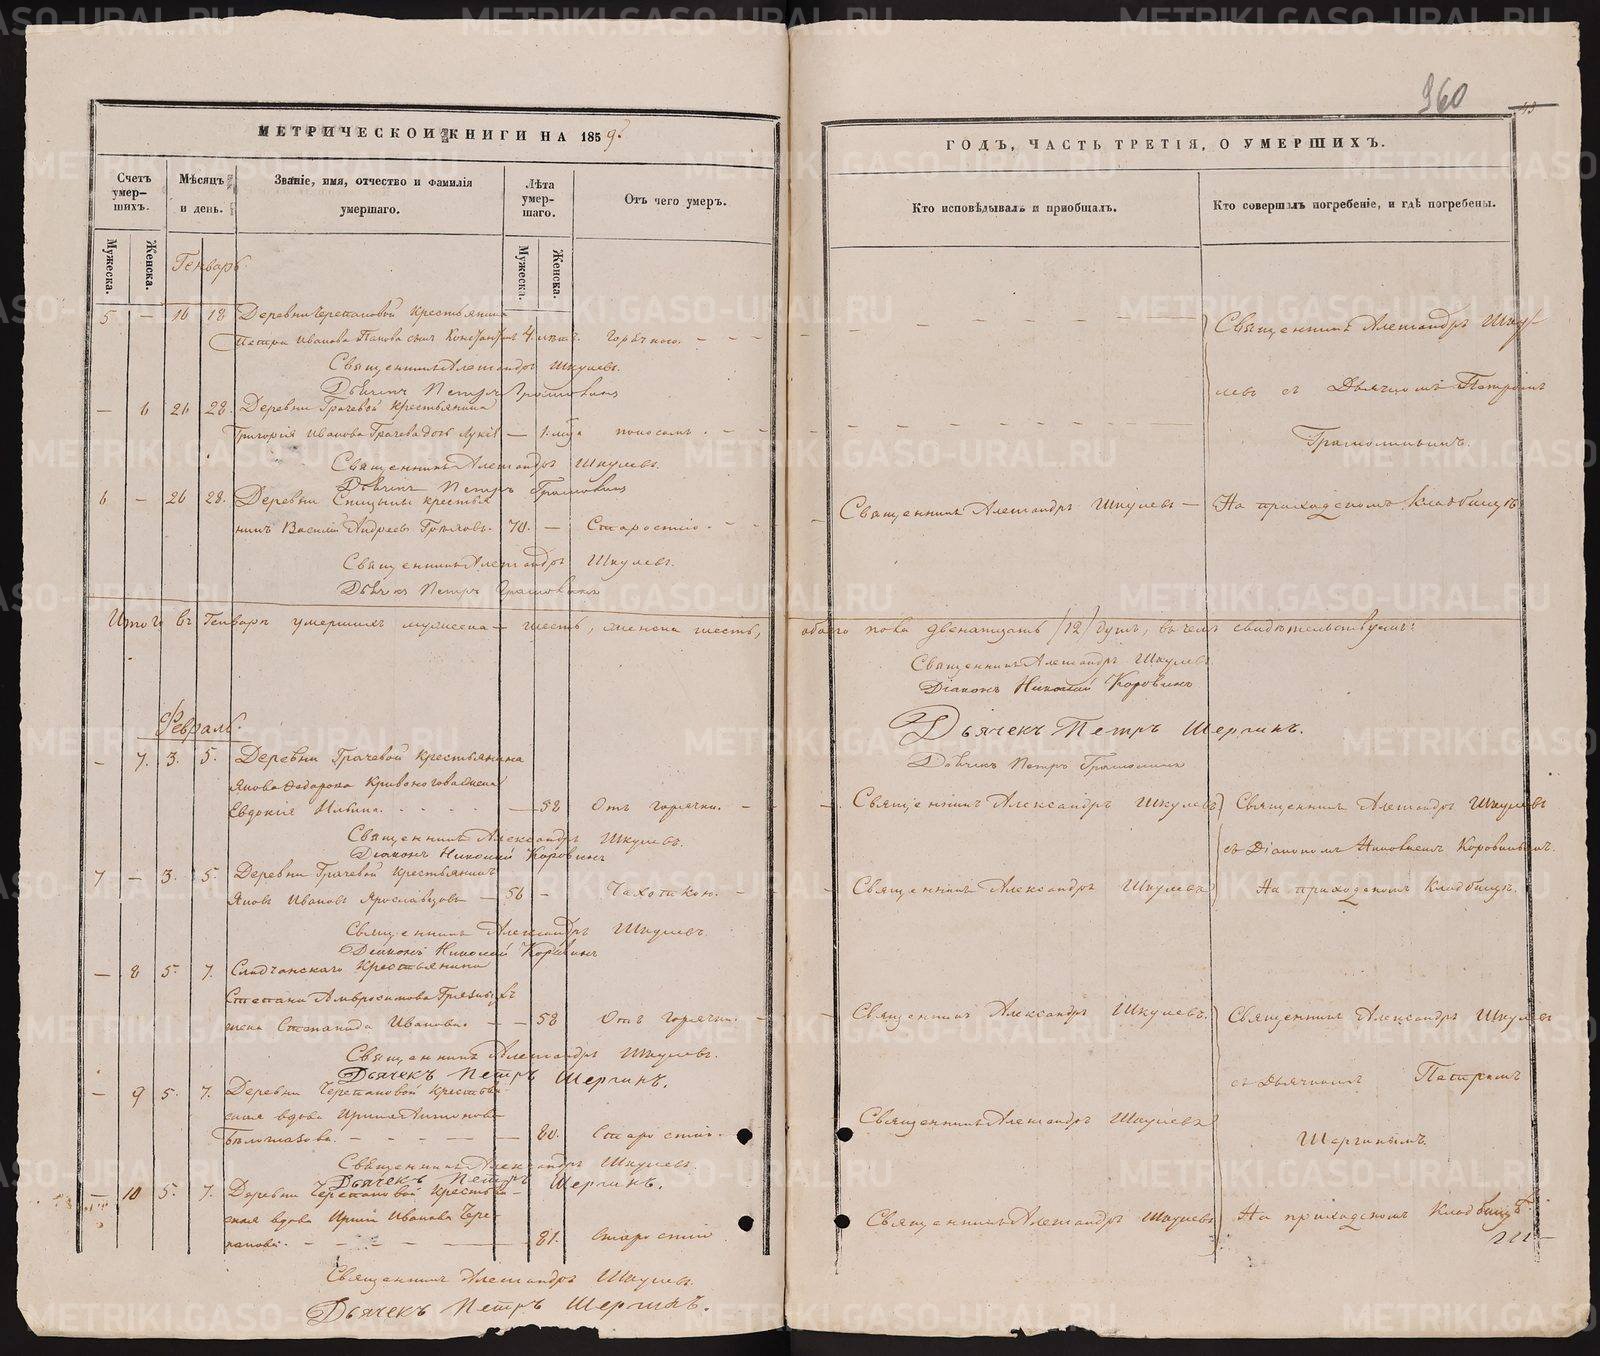 960
МЕТРИЧЕСКОЙ КНИГИ НА 1859 г.
ГОДЪ, ЧАСТЬ ТРЕТІЯ, О УМЕРШИХЪ.
Счетъ умер-шихъ.
Мѣсяцъ и день.
Званіе, имя, отчество и фамилія умершаго.
Лѣта умер-шаго.
Отъ чего умеръ.
Кто исповѣдывалъ и пріобщалъ.
Кто совершалъ погребеніе, и гдѣ погребены.
Мужеска.
Женска.
Мужеска.
Женска.
Генварь
5 — 16 18 Деревни Черепановой крестьянина
Петра Иванова Попова сынъ 4
Священникъ Александръ Шкулевъ.
Дьячекъ Петръ
Священникъ Александръ Шку-
левъ съ Дьячкомъ Петромъ
— 6 26 28. Деревни Грачевой крестьянина
Григорія Иванова Грачева дочь — 1. поносомъ
Священникъ Александръ Шкулевъ.
Дьячекъ Петръ
6 — 26 28. Деревни крестья
нинъ Василій Андреевъ 70. — Старостію.
Священникъ Александръ Шкулевъ —
На приходскомъ кладбищѣ
Священникъ Александръ Шкулевъ.
Дьячекъ Петръ
Итого въ Генварѣ умершихъ мужеска — шесть, женска шесть, обоего пола двенатцать /12/ душъ, въ чемъ свидѣтельствуемъ:
Священникъ Александръ Шкулевъ
Діаконъ Николай Коровинъ
Дьячекъ Петръ Шергинъ.
Дьячекъ Петръ
Февраль.
— 7. 3. 5. Деревни Грачевой крестьянина
Якова Федорова Кривоногова жена
Евдокія Ильина. — 58 Отъ горячки.
Священникъ Александръ Шкулевъ
Священникъ Александръ Шкулевъ
Священникъ Александръ Шкулевъ.
Діаконъ Николай Коровинъ
съ Діакономъ Николаемъ Коровинымъ.
7 — 3. 5. Деревни Грачевой крестьянинъ
Яковъ Ивановъ Ярославцовъ — 56 — Чахоткою.
Священникъ Александръ Шкулевъ
На приходскомъ кладбищѣ.
Священникъ Александръ Шкулевъ.
Діаконъ Николай Коровинъ
— 8 5. 7. крестьянина
Степана Амвросимова
жена Степанида Иванова — — 58 Отъ горячки.
Священникъ Александръ Шкулевъ.
Священникъ Александръ Шкулевъ
Священникъ Александръ Шкулевъ.
Дьячекъ Петръ Шергинъ.
съ Дьячкомъ Петромъ
— 9 5. 7. Деревни Черепановой крестьян-
ская вдова Антонова
Бѣлоглазова. — 80. Старостію.
Священникъ Александръ Шкулевъ
Шергинымъ.
Священникъ Александръ Шкулевъ.
Дьячекъ Петръ Шергинъ.
— 10 5. 7. Деревни Черепановой крестьян-
ская вдова Иванова Чере-
панова. — 81. Старостію
Священникъ Александръ Шкулевъ
На приходскомъ кладбищѣ.
Священникъ Александръ Шкулевъ.
Дьячекъ Петръ Шергинъ.
METRIKI.GASO-URAL.RU